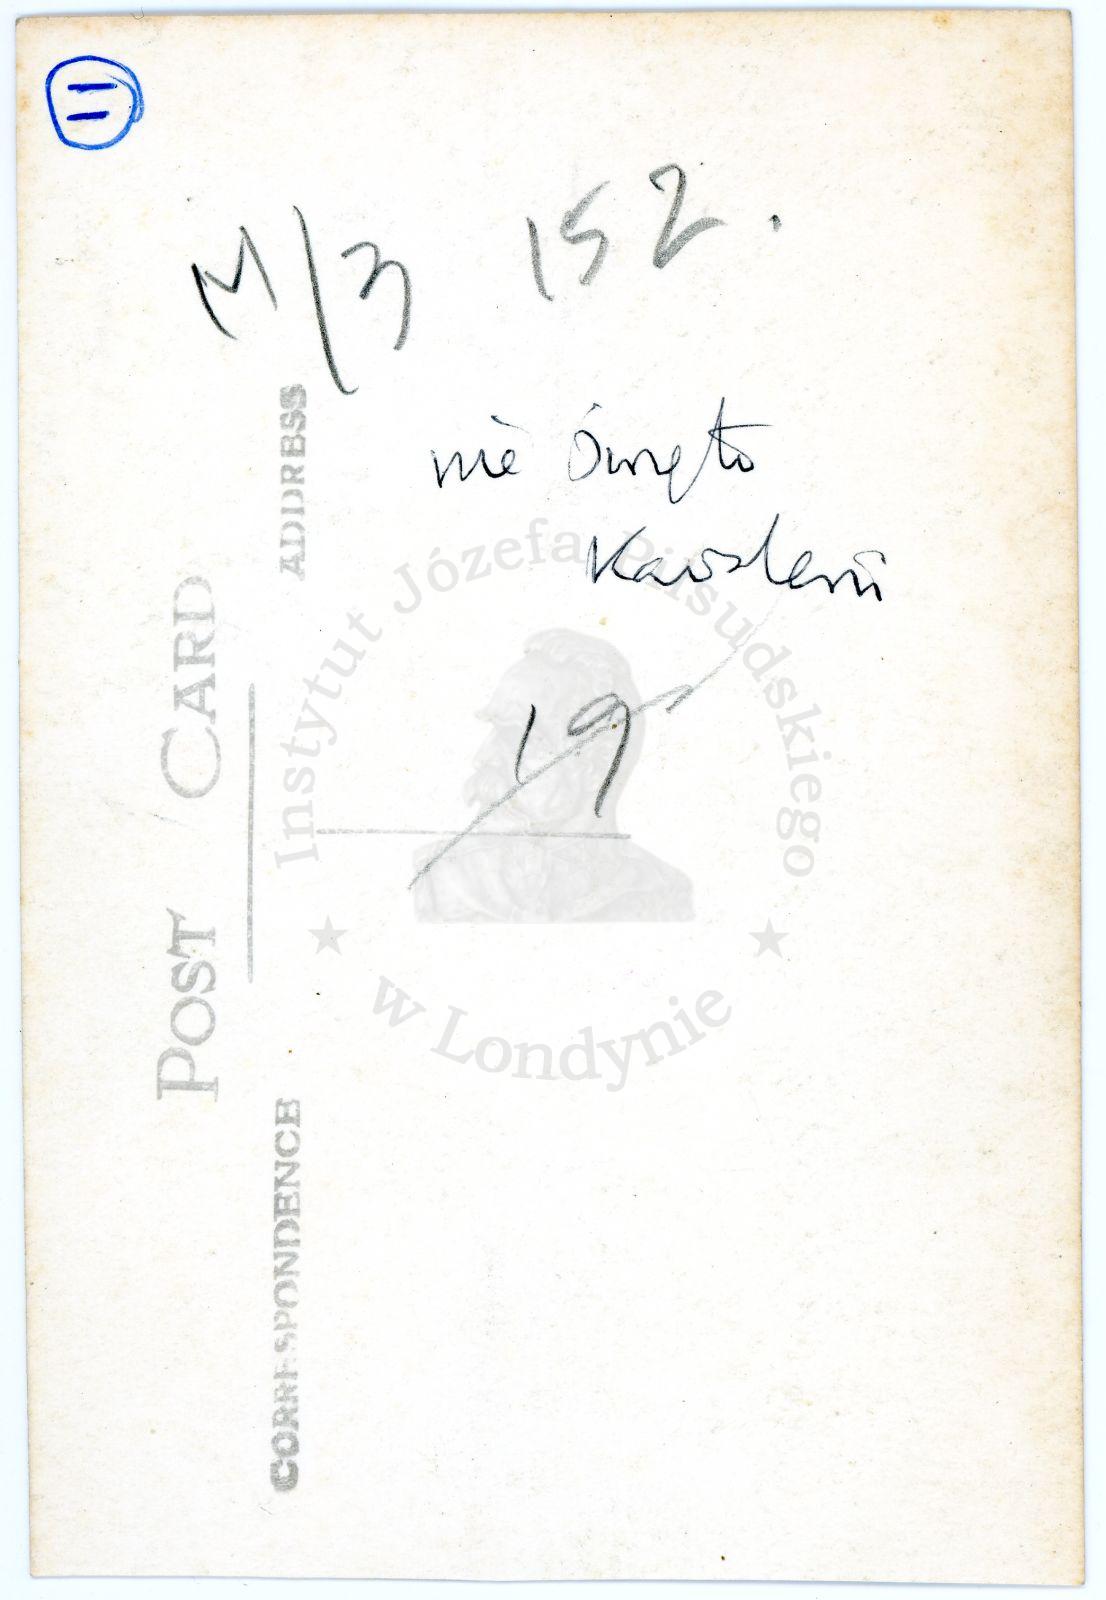 11
M/3 152.
nie Święto
Kawalerii
19
POST CARD
ADDRESS
CORRESPONDENCE
Instytut Józefa Piłsudskiego
w Londynie